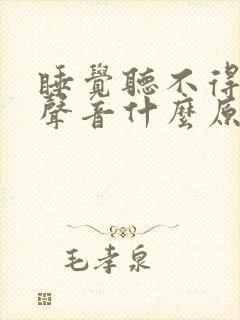 睡覺聽不得
聲音什麼原
毛孝泉